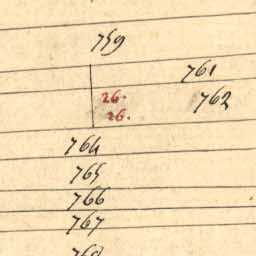 759
761
26.
762
26.
764
765
766
767
768